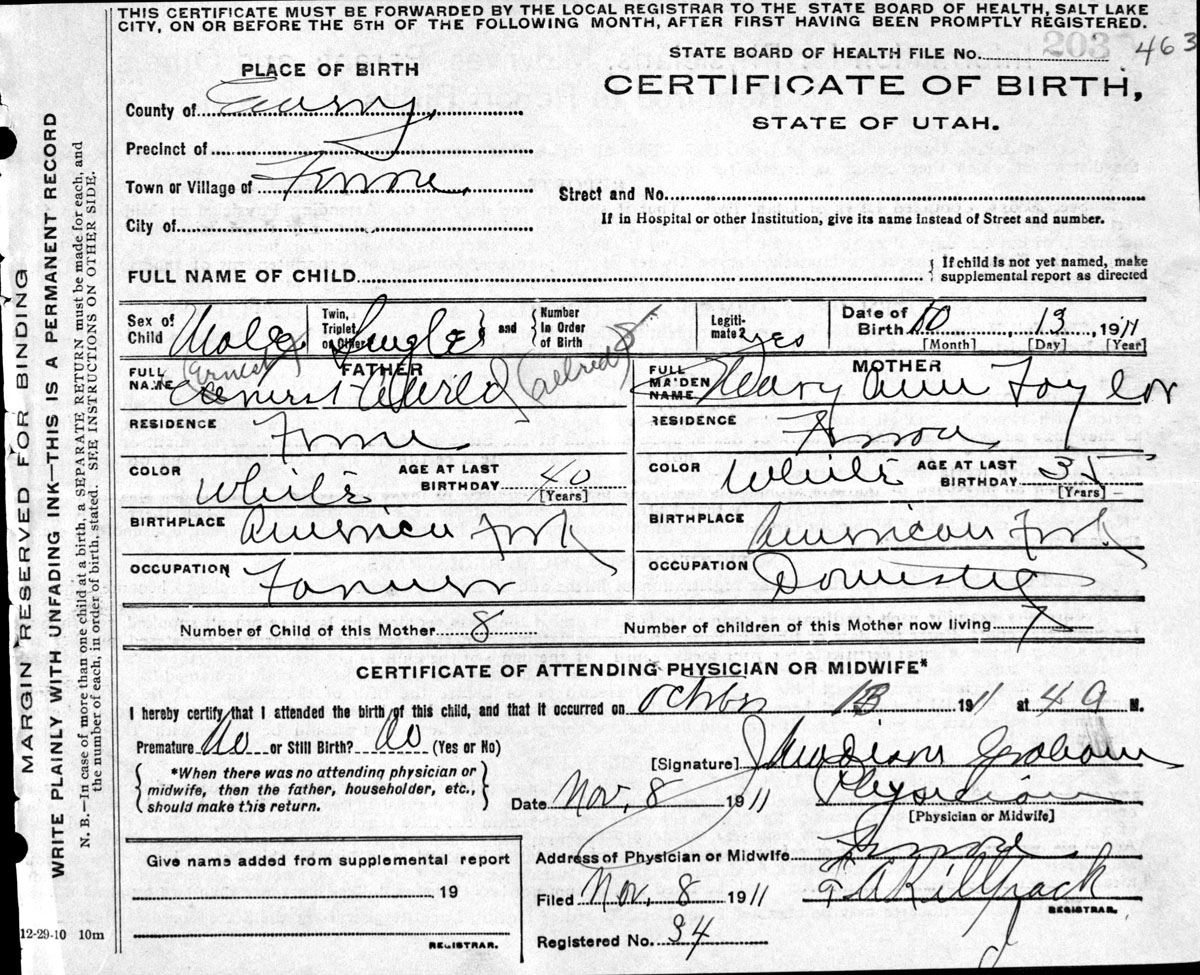 THIS CERTIFICATE MUST BE FORWARDED BY THE LOCAL REGISTRAR TO THE STATE BOARD OF HEALTH, SALT LAKE
CITY, ON OR BEFORE THE 5TH OF THE FOLLOWING MONTH, AFTER FIRST HAVING BEEN PROMPTLY REGISTERED.
STATE BOARD OF HEALTH FILE No. 203 463
PLACE OF BIRTH
CERTIFICATE OF BIRTH,
STATE OF UTAH.
County of Emery
Precinct of
Town or Village of Ferron
Street and No.
City of
If in Hospital or other Institution, give its name instead of Street and number.
FULL NAME OF CHILD
{ If child is not yet named, make
supplemental report as directed
Sex of Child Male
Twin, Triplet, or Other Single
and
Number In Order of Birth 8
Legiti-mate? yes
Date of Birth 10 13 1911
[Month] [Day] [Year]
FATHER
FULL NAME Ernest (Ernest) (Allred)
RESIDENCE Ferron
COLOR White AGE AT LAST BIRTHDAY 40
[Years]
BIRTHPLACE American Fork
OCCUPATION Farmer
MOTHER
FULL MAIDEN NAME Mary Ann Taylor
RESIDENCE Ferron
COLOR White AGE AT LAST BIRTHDAY 35
[Years]
BIRTHPLACE American Fork
OCCUPATION Domestic
Number of Child of this Mother 8 Number of children of this Mother now living 7
CERTIFICATE OF ATTENDING PHYSICIAN OR MIDWIFE*
I hereby certify that I attended the birth of this child, and that it occurred on October 13 1911 at 4 M.
Premature No or Still Birth? No (Yes or No)
[Signature] Graham
{ *When there was no attending physician or
midwife, then the father, householder, etc.,
should make this return. }
Date Nov, 8 1911 Physician
[Physician or Midwife]
Address of Physician or Midwife Ferron
Filed Nov, 8 1911 Killpack
REGISTRAR.
Registered No. 34
Give name added from supplemental report
19
REGISTRAR.
12-29-10 10m
MARGIN RESERVED FOR BINDING
WRITE PLAINLY WITH UNFADING INK—THIS IS A PERMANENT RECORD
N. B.—In case of more than one child at a birth, a SEPARATE RETURN must be made for each, and
the number of each, in order of birth, stated. SEE INSTRUCTIONS ON OTHER SIDE.